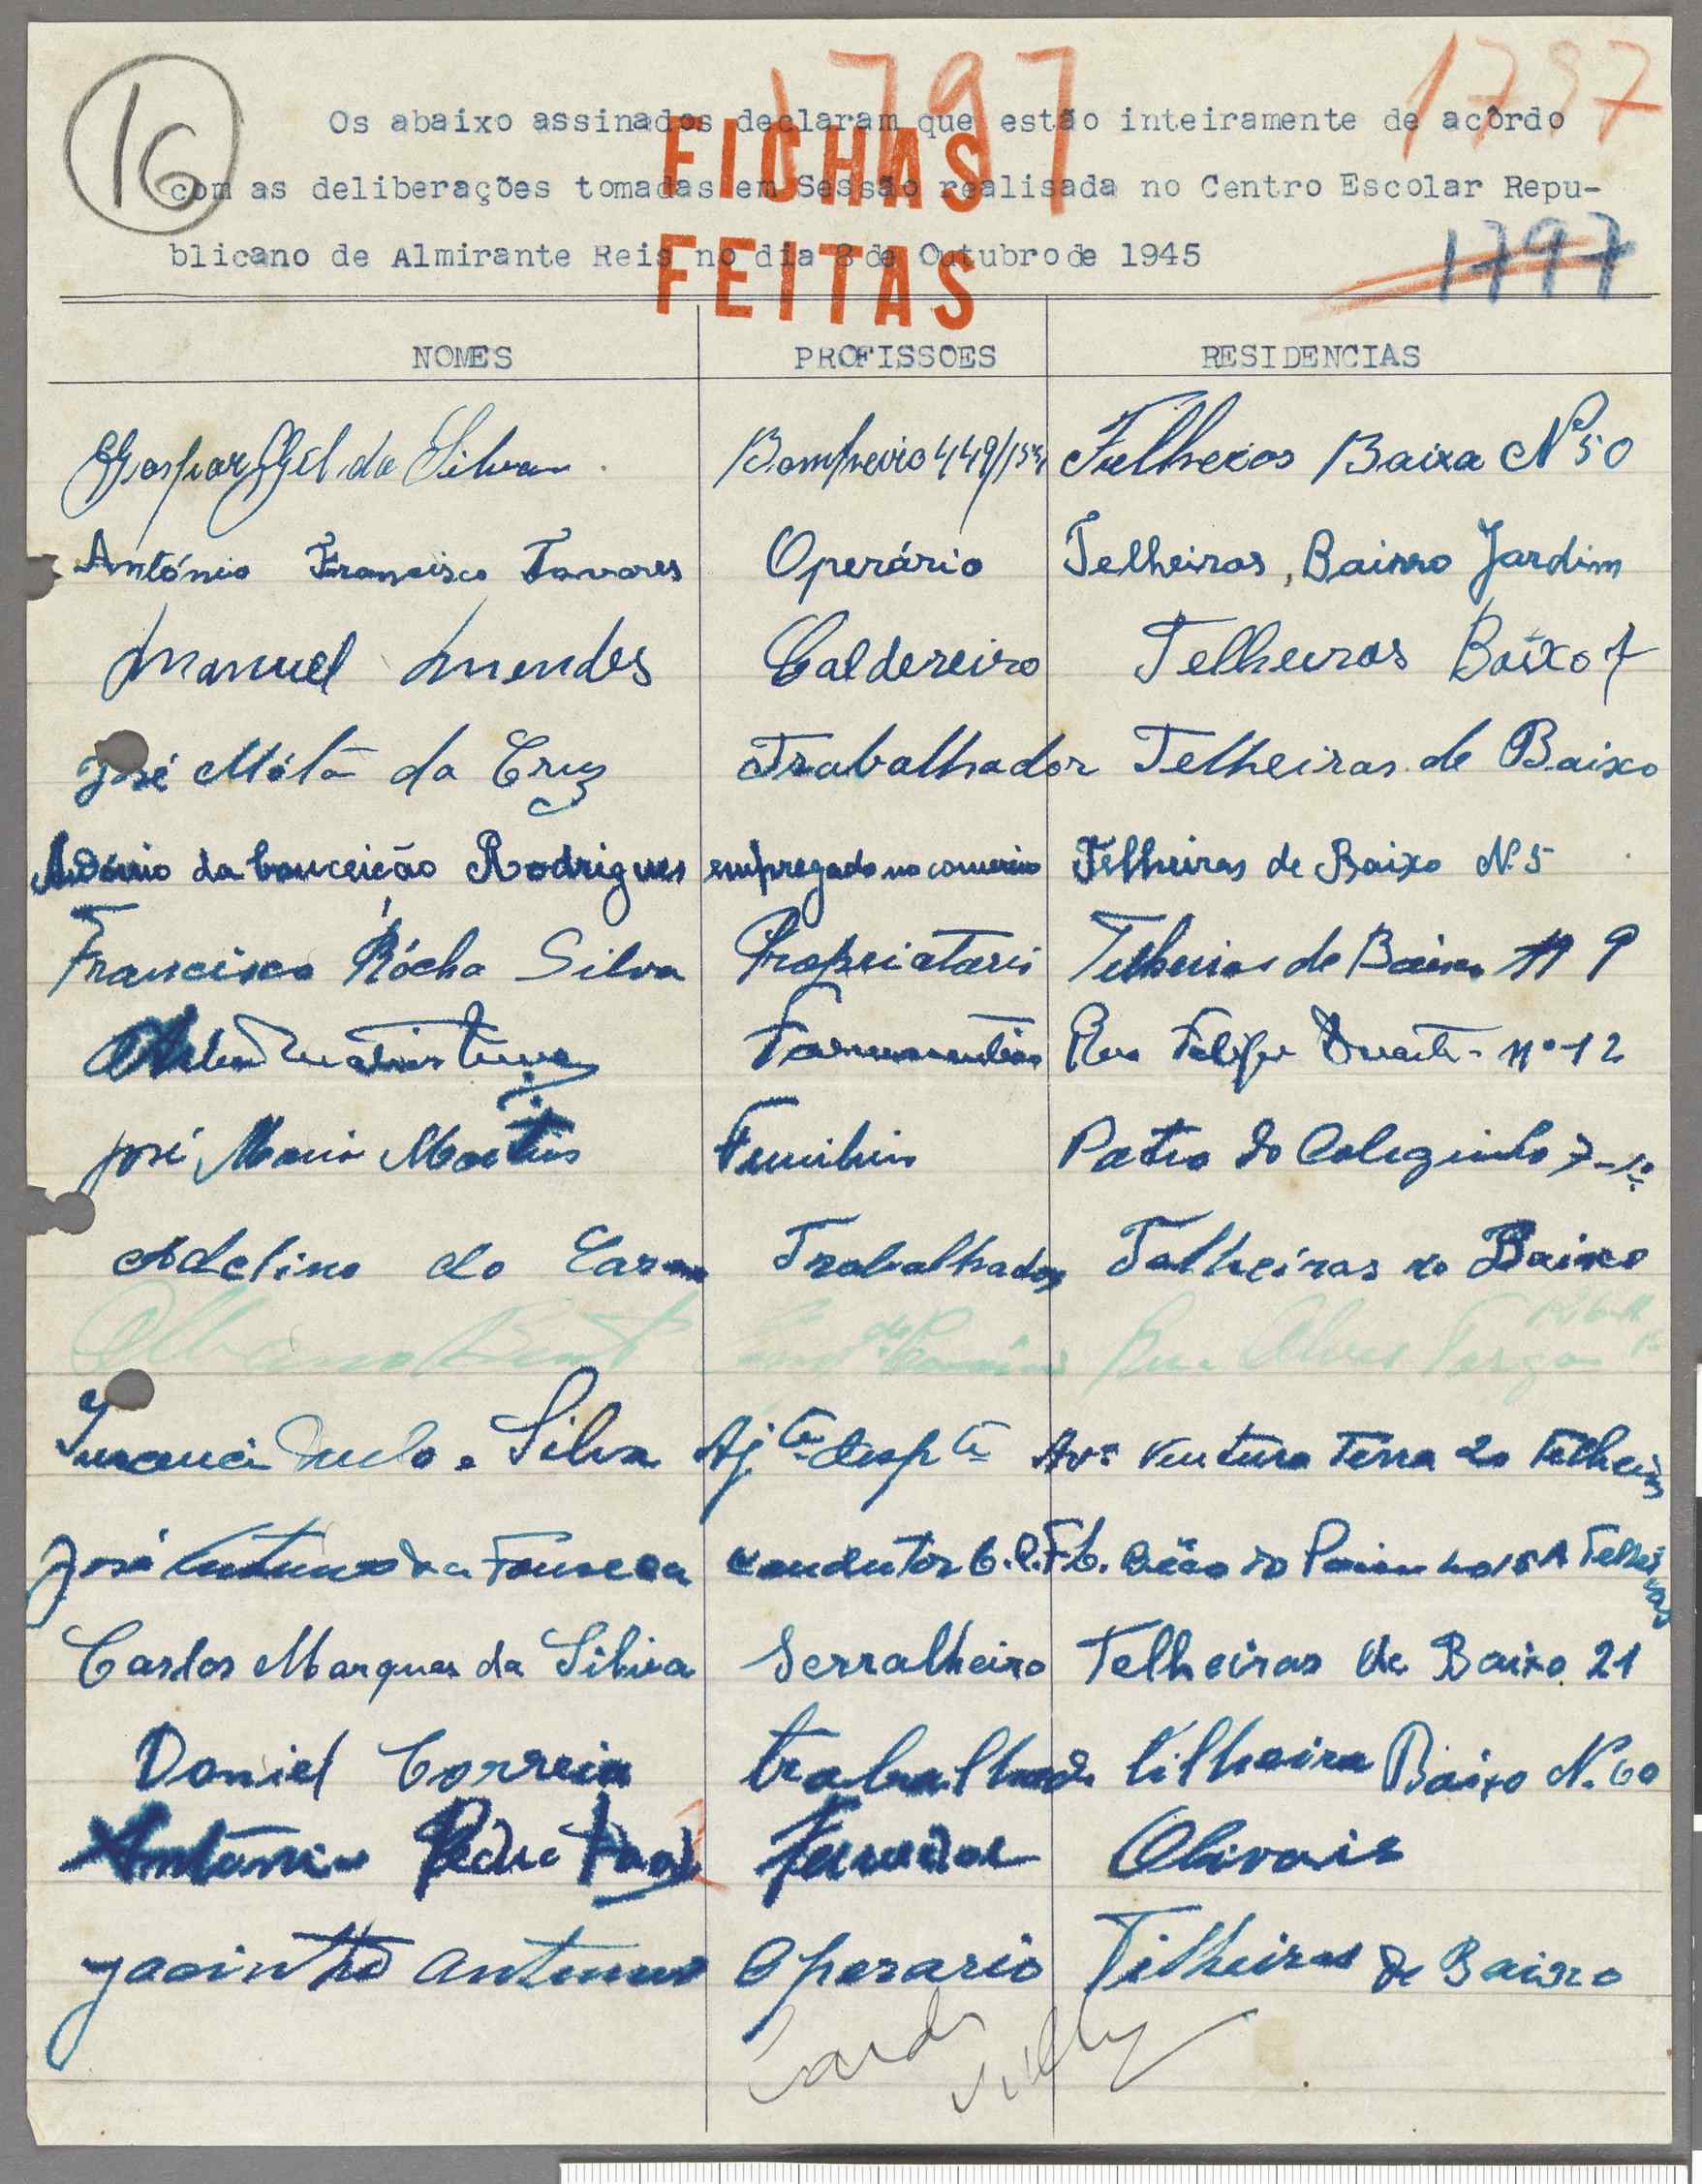 16
1797
1797
Os abaixo assinados declaram que estão inteiramente de acôrdo
com as deliberações tomadas em Sessão realisada no Centro Escolar Repu-
blicano de Almirante Reis no dia 8 de Outubro de 1945
FICHAS
FEITAS
1797
NOMES PROFISSOES RESIDENCIAS
Gaspar Gil da Silva Bombeiro 449 Baixa Nº 50
António Francisco Tavares Operário Telheiras, Bairro Jardim
Manuel Mendes Caldereiro Telheiras Baixo 7
José Móta da Cruz Trabalhador Telheiras de Baixo
António da Conceição Rodrigues empregado no comercio Telheiras de Baixo Nº 5
Francisco Rócha Silva Propriatario Telheiras de Baixo Nº 9
Rua Felipe Duarte nº 12
José Maria Martins Patio do Coleginho 7-1º
Adelino do Carmo Trabalhador Talheiras de Baixo
Albano Bento Rua Alves Torgo
e Silva Aj.te desp.te Avª Ventura Terra 20 Telheiras
José Antunes da Fonseca condutor C.C.F.L. Telheiras
Carlos Marques da Silva Serralheiro Telheiras de Baixo 21
Daniel Correia trabalhador tilheira Baixo N. 60
António Pedro Olivais
Jacintho Antunes Operario Tilheiras de Baixo